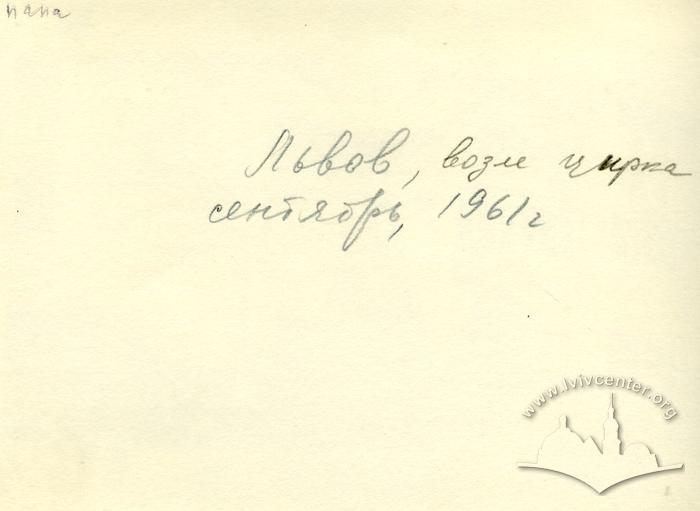 папа
Львов, возле цирка
сентябрь, 1961 г
www.lvivcenter.org